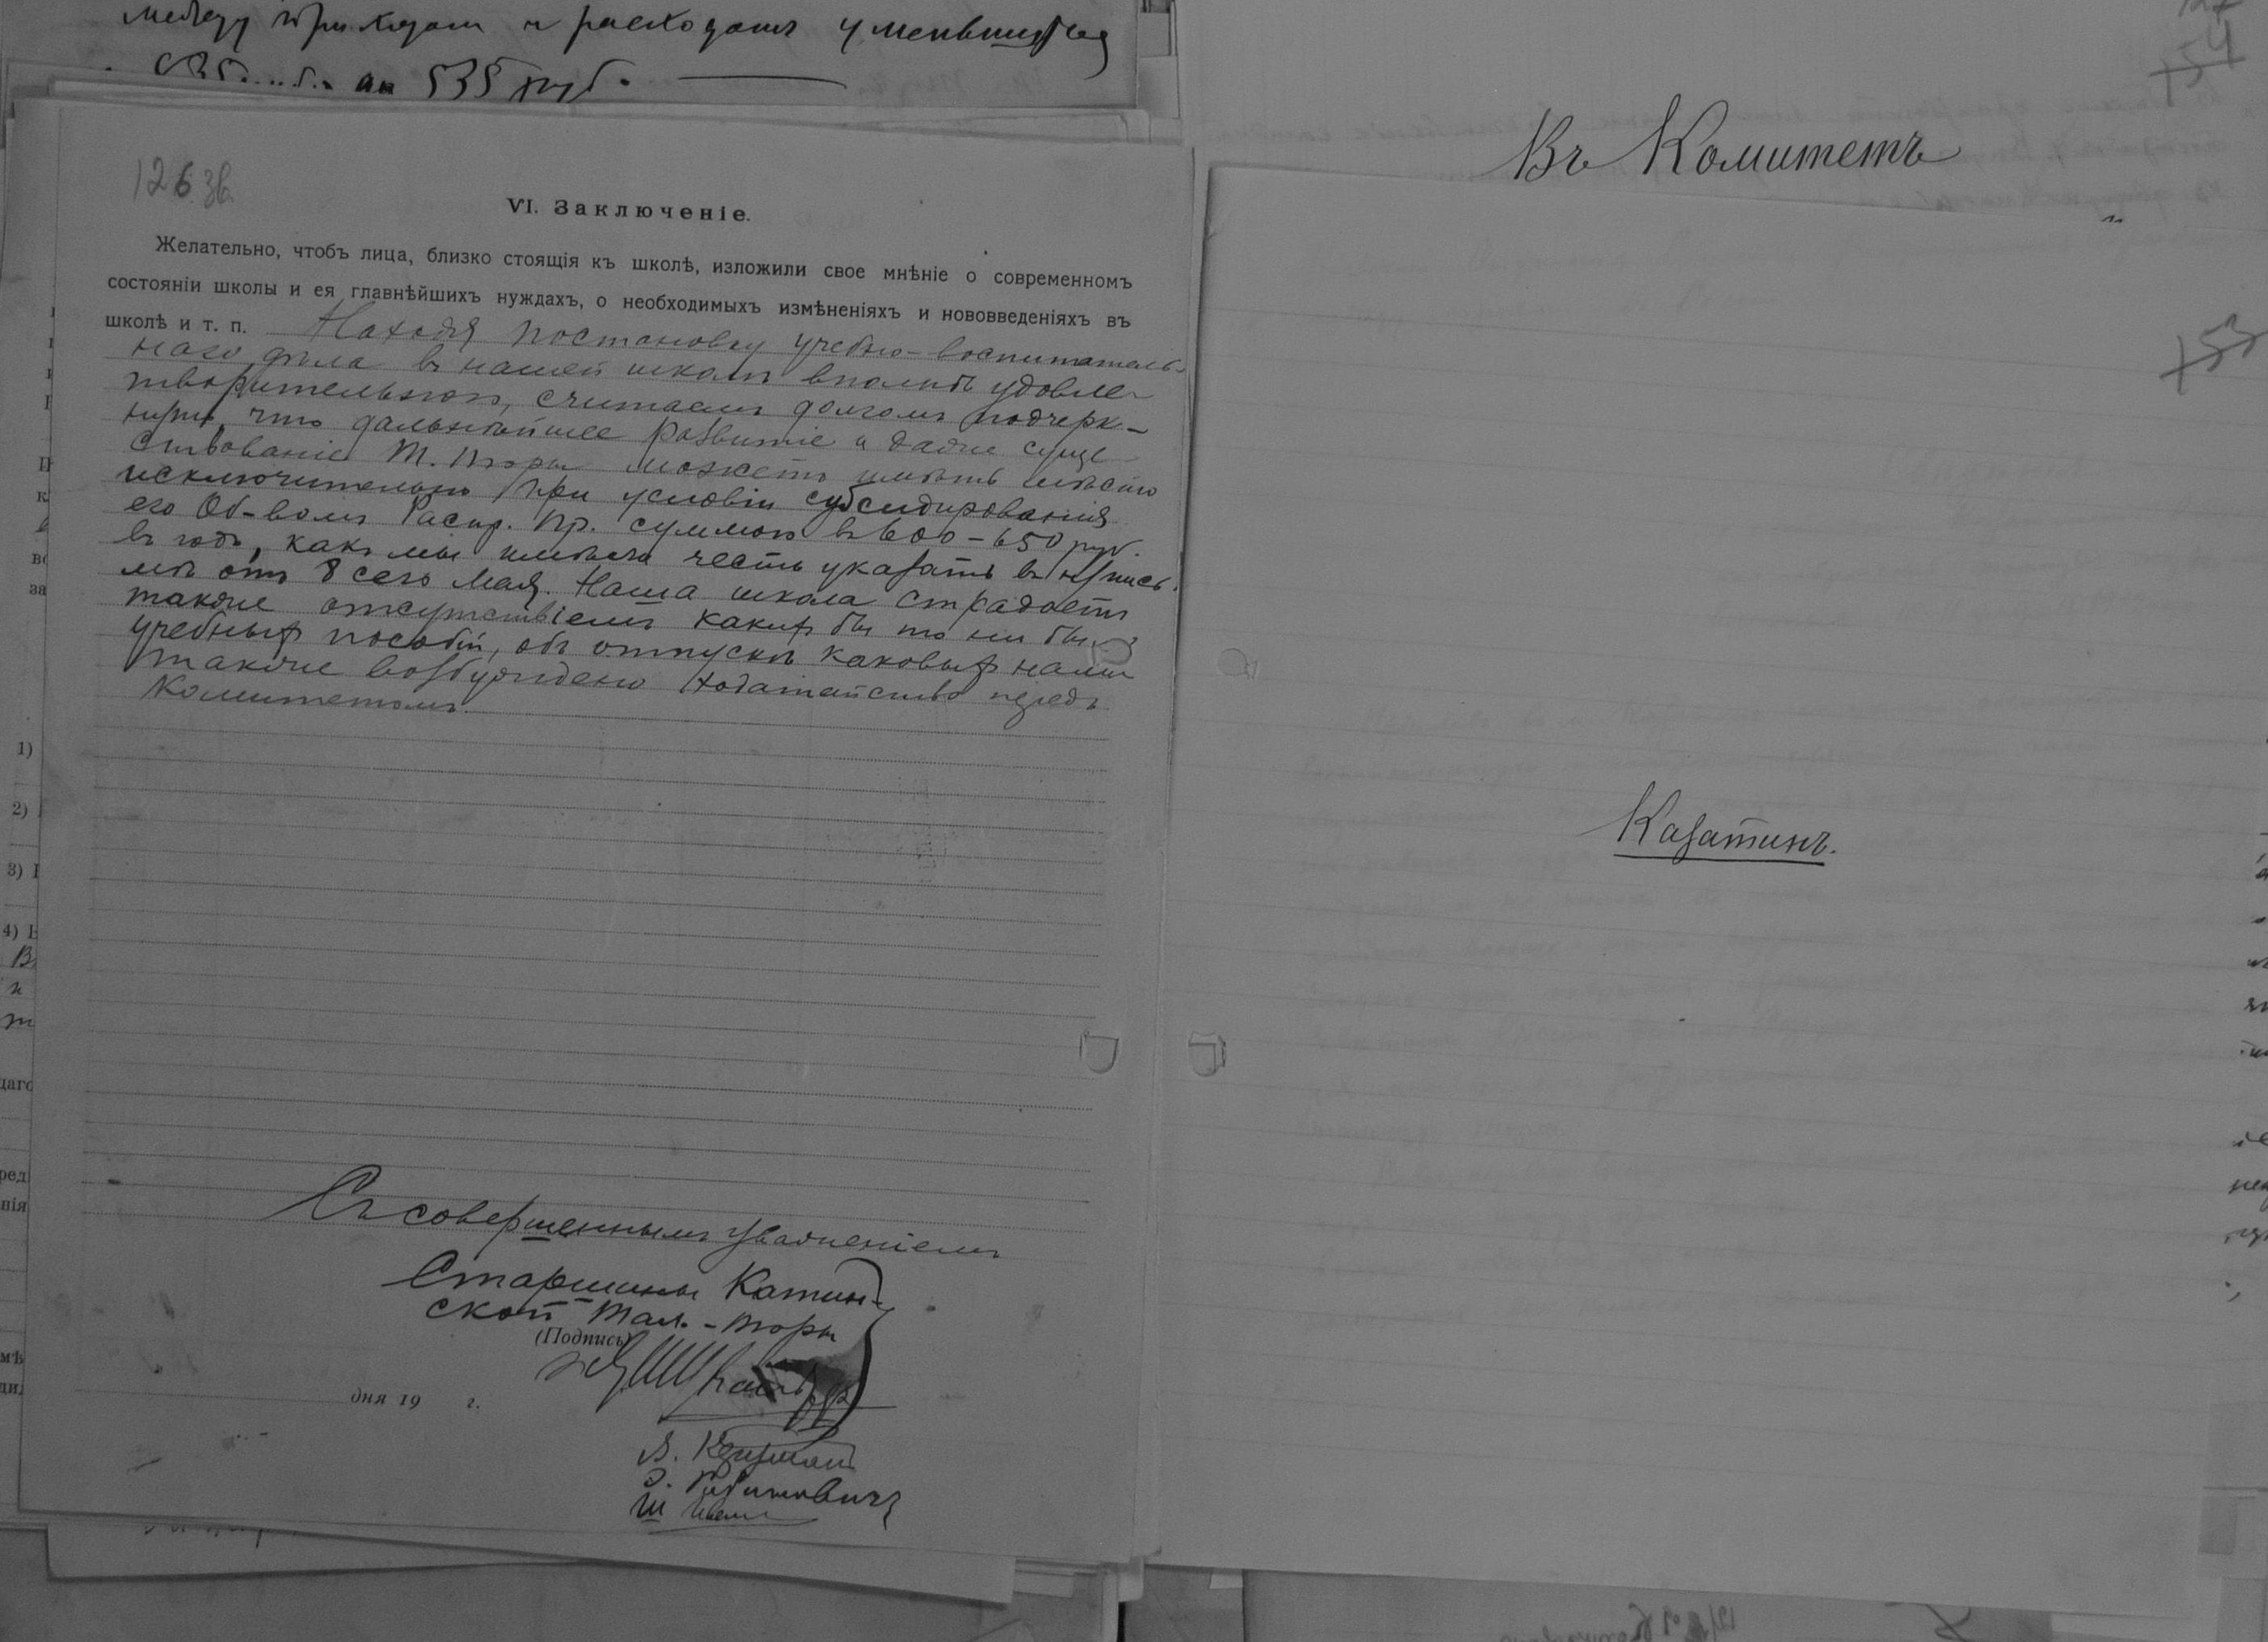 между приходом и расходомъ уменьшится
на 535 руб.
126 зв.
VI. Заключеніе.
Желательно, чтобъ лица, близко стоящія къ школѣ, изложили свое мнѣніе о современномъ
состояніи школы и ея главнѣйшихъ нуждахъ, о необходимыхъ измѣненіяхъ и нововведеніяхъ въ
школѣ и т. п. Находя постановку учебно-воспитатель-
наго дѣла въ нашей школѣ вполнѣ удовле-
творительною, считаемъ долгомъ подчерк-
нуть, что дальнѣйшее развитіе и даже суще-
ствованіе Т. Торы можетъ имѣть мѣсто
исключительно при условіи субсидированія
его Об-вомъ Распр. Пр. суммою въ 600-650 руб.
въ годъ, какъ мы имѣли честь указать въ пись-
мѣ отъ 8 сего Мая. Наша школа страдаетъ
также отсутствіемъ какихъ бы то ни было
учебныхъ пособій, объ отпускѣ каковыхъ нами
также возбуждено ходатайство передъ
Комитетомъ.
Съ совершеннымъ уваженіемъ
Старшины Катин-
ской Талм.-Торы
(Подпись)
дня 19 г.
Рабиновичъ
Ш
154
Въ Комитетъ
153
Казатинъ.
1)
2)
3)
4)